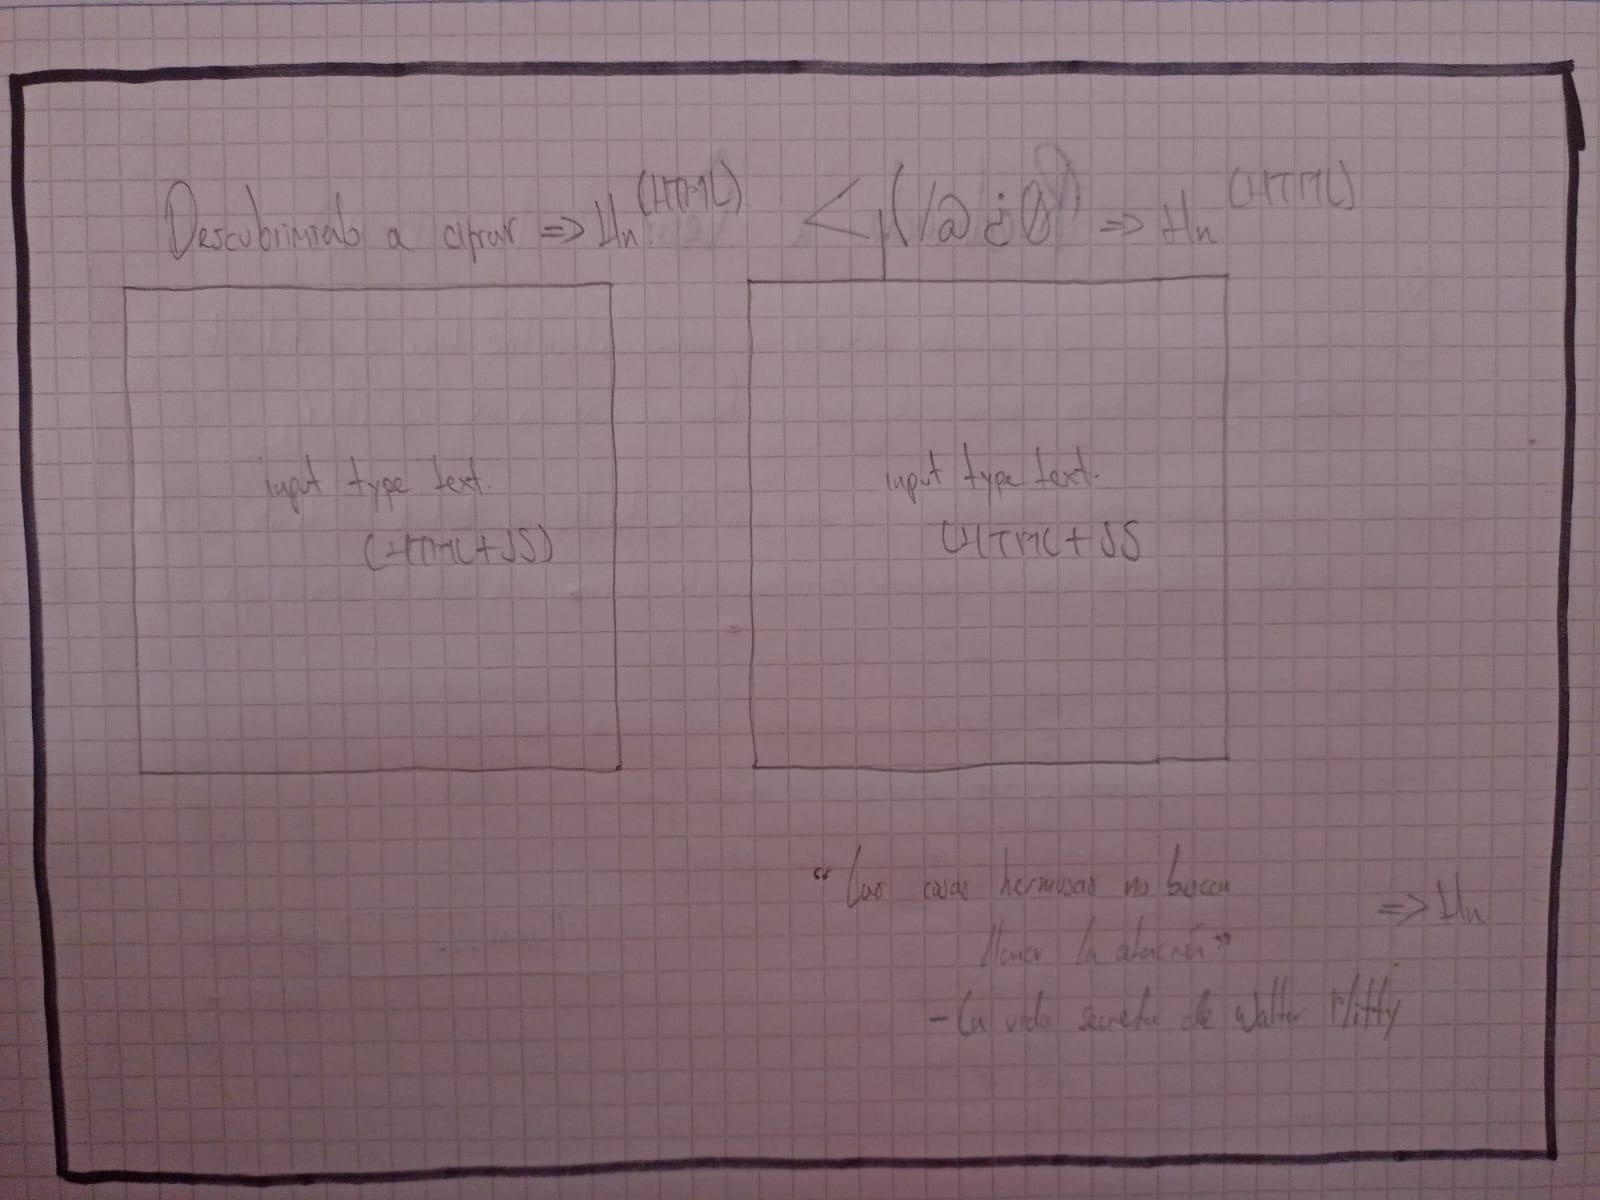 Descubrimiento a cifrar => Hn (HTML)
<\(/@¿0) => Hn (HTML)
input type text.
(HTML+JS)
input type text.
(HTML+JS
"Las cosas hermosas no buscan
llamar la atención"
=> Hn
- La vida secreta de Walter Mitty